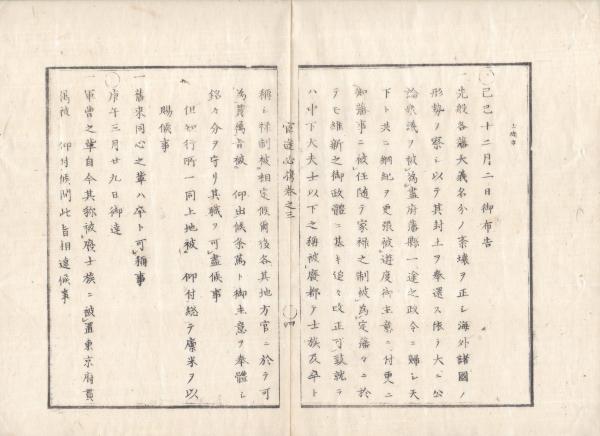 士職部
〇己巳十二月二日御布告
一先般各藩大義名分ノ紊壊ヲ正シ海外諸國ノ
形勢ヲ察シ以テ其封土ヲ奉還ス依テ大ニ公
論衆議ヲ被為盡府藩縣一途之政令ニ歸シ天
下ト共ニ綱紀ヲ更張被遊度御主意ニ付更ニ
御藩事ニ被任随テ家禄之制被為定藩々ニ於
テモ維新之御政體ニ基キ追々改正可致就テ
ハ中下大夫士以下之稱被廢都テ士族及卒ト
官途必携巻之三
〇四
稱シ禄制被相定候爾後各其地方官ニ於テ可
為貫属旨被 仰出候条萬ト御主意ヲ奉體シ
銘々分ヲ守リ其職ヲ可盡候事
但知行所一同上地被 仰付総テ廩米ヲ以
賜候事
一舊来同心之輩ハ卒ト可稱事
〇庚午三月廿九日御達
一軍曹之輩自今其称被廢士族ニ被置東京府貫
属被 仰付候間此旨相達候事